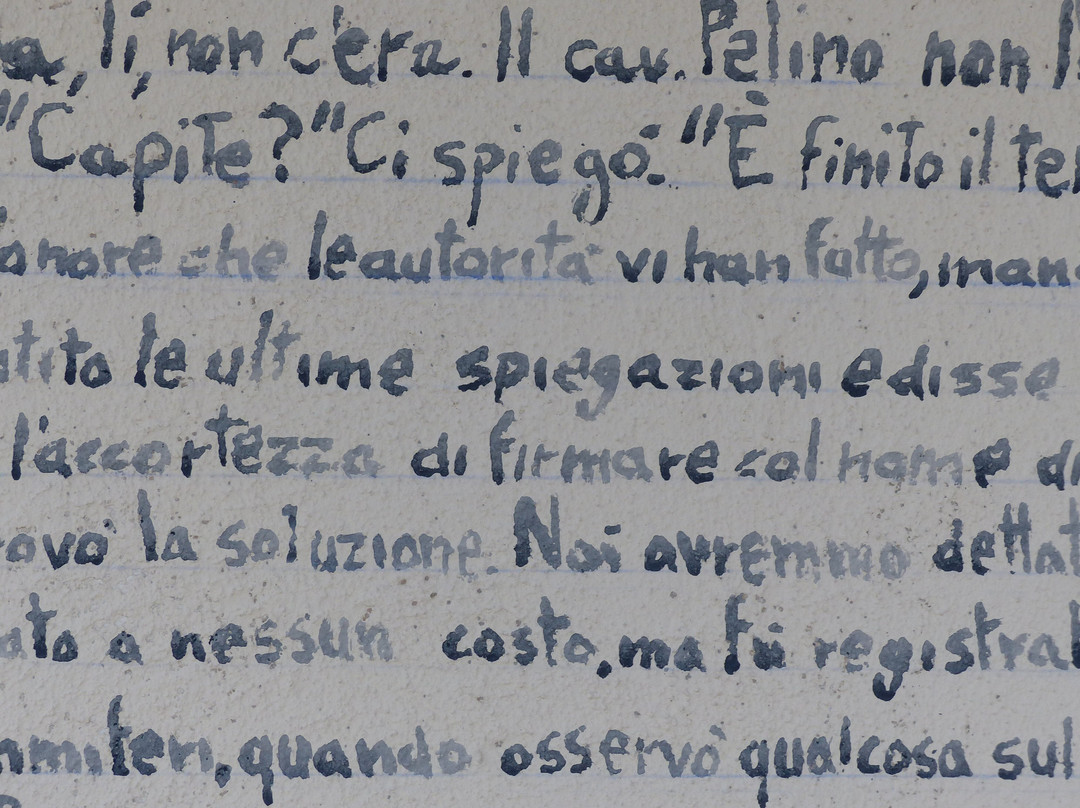 a, lì, non c'era. Il cav. Pelino non l
"Capite?" Ci spiegò. "È finito il te
onore che le autorità vi han fatto, man
tito le ultime spiegazioni e disse
l'accortezza di firmare col nome di
ovò la soluzione. Noi avremmo dettat
ato a nessun costo, ma fu registra
mmiteri, quando osservò qualcosa sul